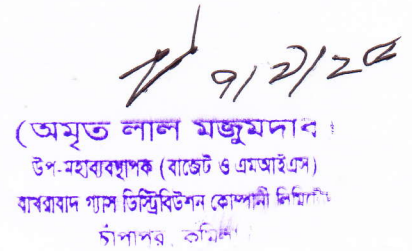 ৭/২/২৫
(অমৃত লাল মজুমদার)
উপ-মহাব্যবস্থাপক (বাজেট ও এমআইএস)
বাখরাবাদ গ্যাস ডিস্ট্রিবিউশন কোম্পানী লিমিটেড
চাঁপাপুর, কুমিল্লা